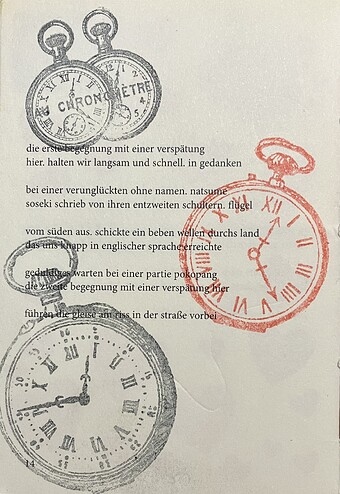 CHRONOMÈTRE
die erste begegnung mit einer verspätung
hier. halten wir langsam und schnell. in gedanken
bei einer verunglückten ohne namen. natsume
soseki schrieb von ihren entzweiten schultern. flügel
vom süden aus. schickte ein beben wellen durchs land
das uns knapp in englischer sprache erreichte
geduldiges warten bei einer partie pokopang
die zweite begegnung mit einer verspätung hier
führen die gleise am riss in der straße vorbei
14